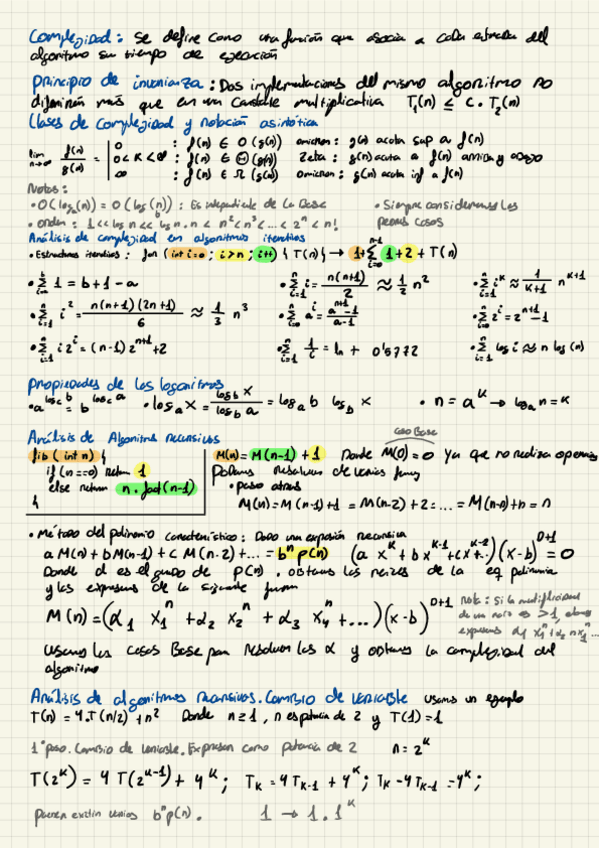 Complejidad: Se define como una función que asocia a cada entrada del
algoritmo su tiempo de ejecución
Principio de invarianza: Dos implementaciones del mismo algoritmo no
diferirán más que en una constante multiplicativa T₁(n) ≤ c·T₂(n)
Clases de complejidad y notación asintótica
lim n→∞ f(n)/g(n) =
0 : f(n) ∈ O(g(n)) omicron: g(n) acota sup a f(n)
0<K<∞ : f(n) ∈ Θ(g(n)) Zeta: g(n) acota a f(n) arriba y abajo
∞ : f(n) ∈ Ω(g(n)) omicron: g(n) acota inf a f(n)
Notas:
• O(log_a(n)) = O(log_b(n)): Es independiente de la Base • Siempre consideramos los
• orden: 1<<log n<<log n . n < n²<n³<...<2ⁿ<n! peores casos
Análisis de complejidad en algoritmos iterativos
• Estructuras iterativas: for (int i=0; i>n; i++) { T(n) } → 1+Σ_{i=0}^{n-1} 1+2+T(n)
• Σ_{i=a}^{b} 1 = b+1-a • Σ_{i=1}^{n} i = n(n+1)/2 ≈ 1/2 n² • Σ_{i=1}^{n} i^k ≈ 1/(K+1) n^{K+1}
• Σ_{i=1}^{n} i² = n(n+1)(2n+1)/6 ≈ 1/3 n³ • Σ_{i=0}^{n} a^i = (a^{n+1}-1)/(a-1) • Σ_{i=0}^{n} 2^i = 2^{n+1}-1
• Σ_{i=1}^{n} i 2^i = (n-1) 2^{n+1}+2 • Σ_{i=1}^{n} 1/i = ln + 0'5772 • Σ_{i=1}^{n} log i ≈ n log(n)
Propiedades de los logaritmos
• a^{log_c b} = b^{log_c a} • log_a x = log_b x / log_b a = log_a b log_b x • n = a^K → log_a n = K
Análisis de Algoritmos recursivos
caso Base
fib (int n) { M(n) = M(n-1) + 1 Donde M(0)=0 ya que no realiza operaciones
if (n==0) return 1 Podemos resolver de varias formas
else return n·fact(n-1) • paso atras
} M(n)=M(n-1)+1 = M(n-2)+2=...=M(n-n)+n = n
• Método del polinomio característico: Dado una expresión recursiva
a M(n)+b M(n-1)+c M(n-2)+... = bⁿ p(n) (a x^K + b x^{K-1} + c x^{K-2}+..)(x-b)^{D+1} = 0
Donde d es el grado de p(n). obtenemos las raizes de la eq polinomia
y las expresamos de la siguiente forma
M(n)=(α₁ x₁ⁿ +α₂ x₂ⁿ + α₃ x₄ⁿ +...)(x-b)^{D+1} Nota: Si la multiplicidad
de una raiz es >1,
expresamos α₁ x₁ⁿ+α₂ n x₁ⁿ...
usamos los casos Base para resolver los α y obtenemos la complejidad del
algoritmo
Análisis de algoritmos recursivos. Cambio de variable usamos un ejemplo
T(n) = 4·T(n/2)+n² Donde n≥1, n es potencia de 2 y T(1)=1
1°paso. Cambio de variable. Expresan como potencia de 2 n=2^K
T(2^K) = 4 T(2^{K-1})+ 4^K ; T_K = 4T_{K-1} + 4^K ; T_K - 4T_{K-1} = 4^K ;
pueden existir varios bⁿp(n). 1 → 1 . 1^K